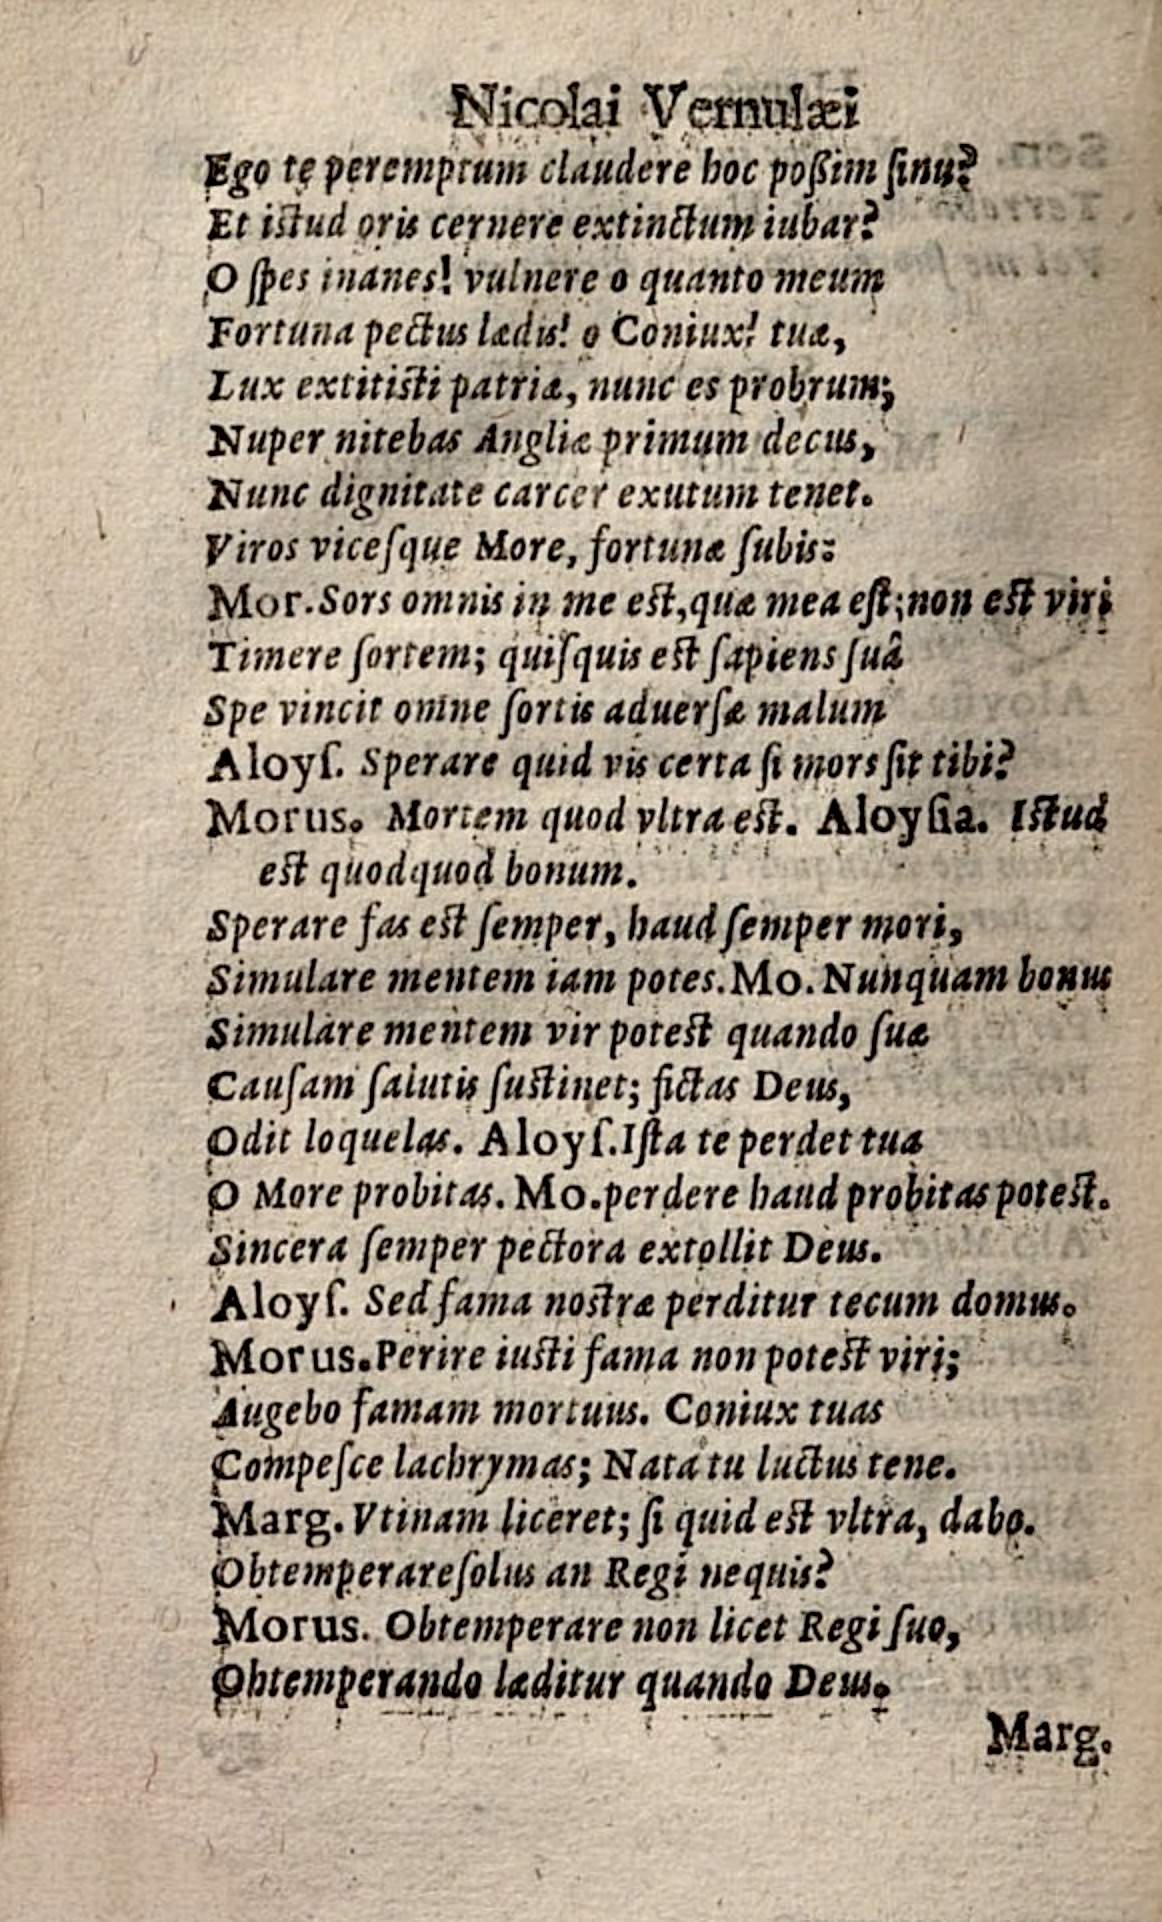 Nicolai Vernulæi
Ego te peremptum claudere hoc poßim ſinu?
Et istud oris cernere extinctum iubar?
O ſpes inanes! vulnere o quanto meum
Fortuna pectus lædis! o Coniux! tuæ,
Lux extitisti patriæ, nunc es probrum;
Nuper nitebas Angliæ primum decus,
Nunc dignitate carcer exutum tenet.
Viros viceſque More, fortunæ ſubis:
Mor. Sors omnis in me est, quæ mea eſt; non est viri
Timere ſortem; quiſquis est ſapiens ſuâ
Spe vincit omne ſortis aduerſæ malum
Aloyſ. Sperare quid vis certa ſi mors ſit tibi?
Morus. Mortem quod vltra est. Aloyſia. Istud
est quodquod bonum.
Sperare fas est ſemper, haud ſemper mori,
Simulare mentem iam potes. Mo. Nunquam bonus
Simulare mentem vir potest quando ſuæ
Cauſam ſalutis ſustinet; fictas Deus,
Odit loquelas. Aloyſ. Iſta te perdet tua
O More probitas. Mo. perdere haud probitas potest.
Sincera ſemper pectora extollit Deus.
Aloyſ. Sed fama nostræ perditur tecum domus.
Morus. Perire iusti fama non potest viri;
Augebo famam mortuus. Coniux tuas
Compeſce lachrymas; Nata tu luctus tene.
Marg. Vtinam liceret; ſi quid est vltra, dabo.
Obtemperare ſolus an Regi nequis?
Morus. Obtemperare non licet Regi ſuo,
Obtemperando læditur quando Deus.
Marg.